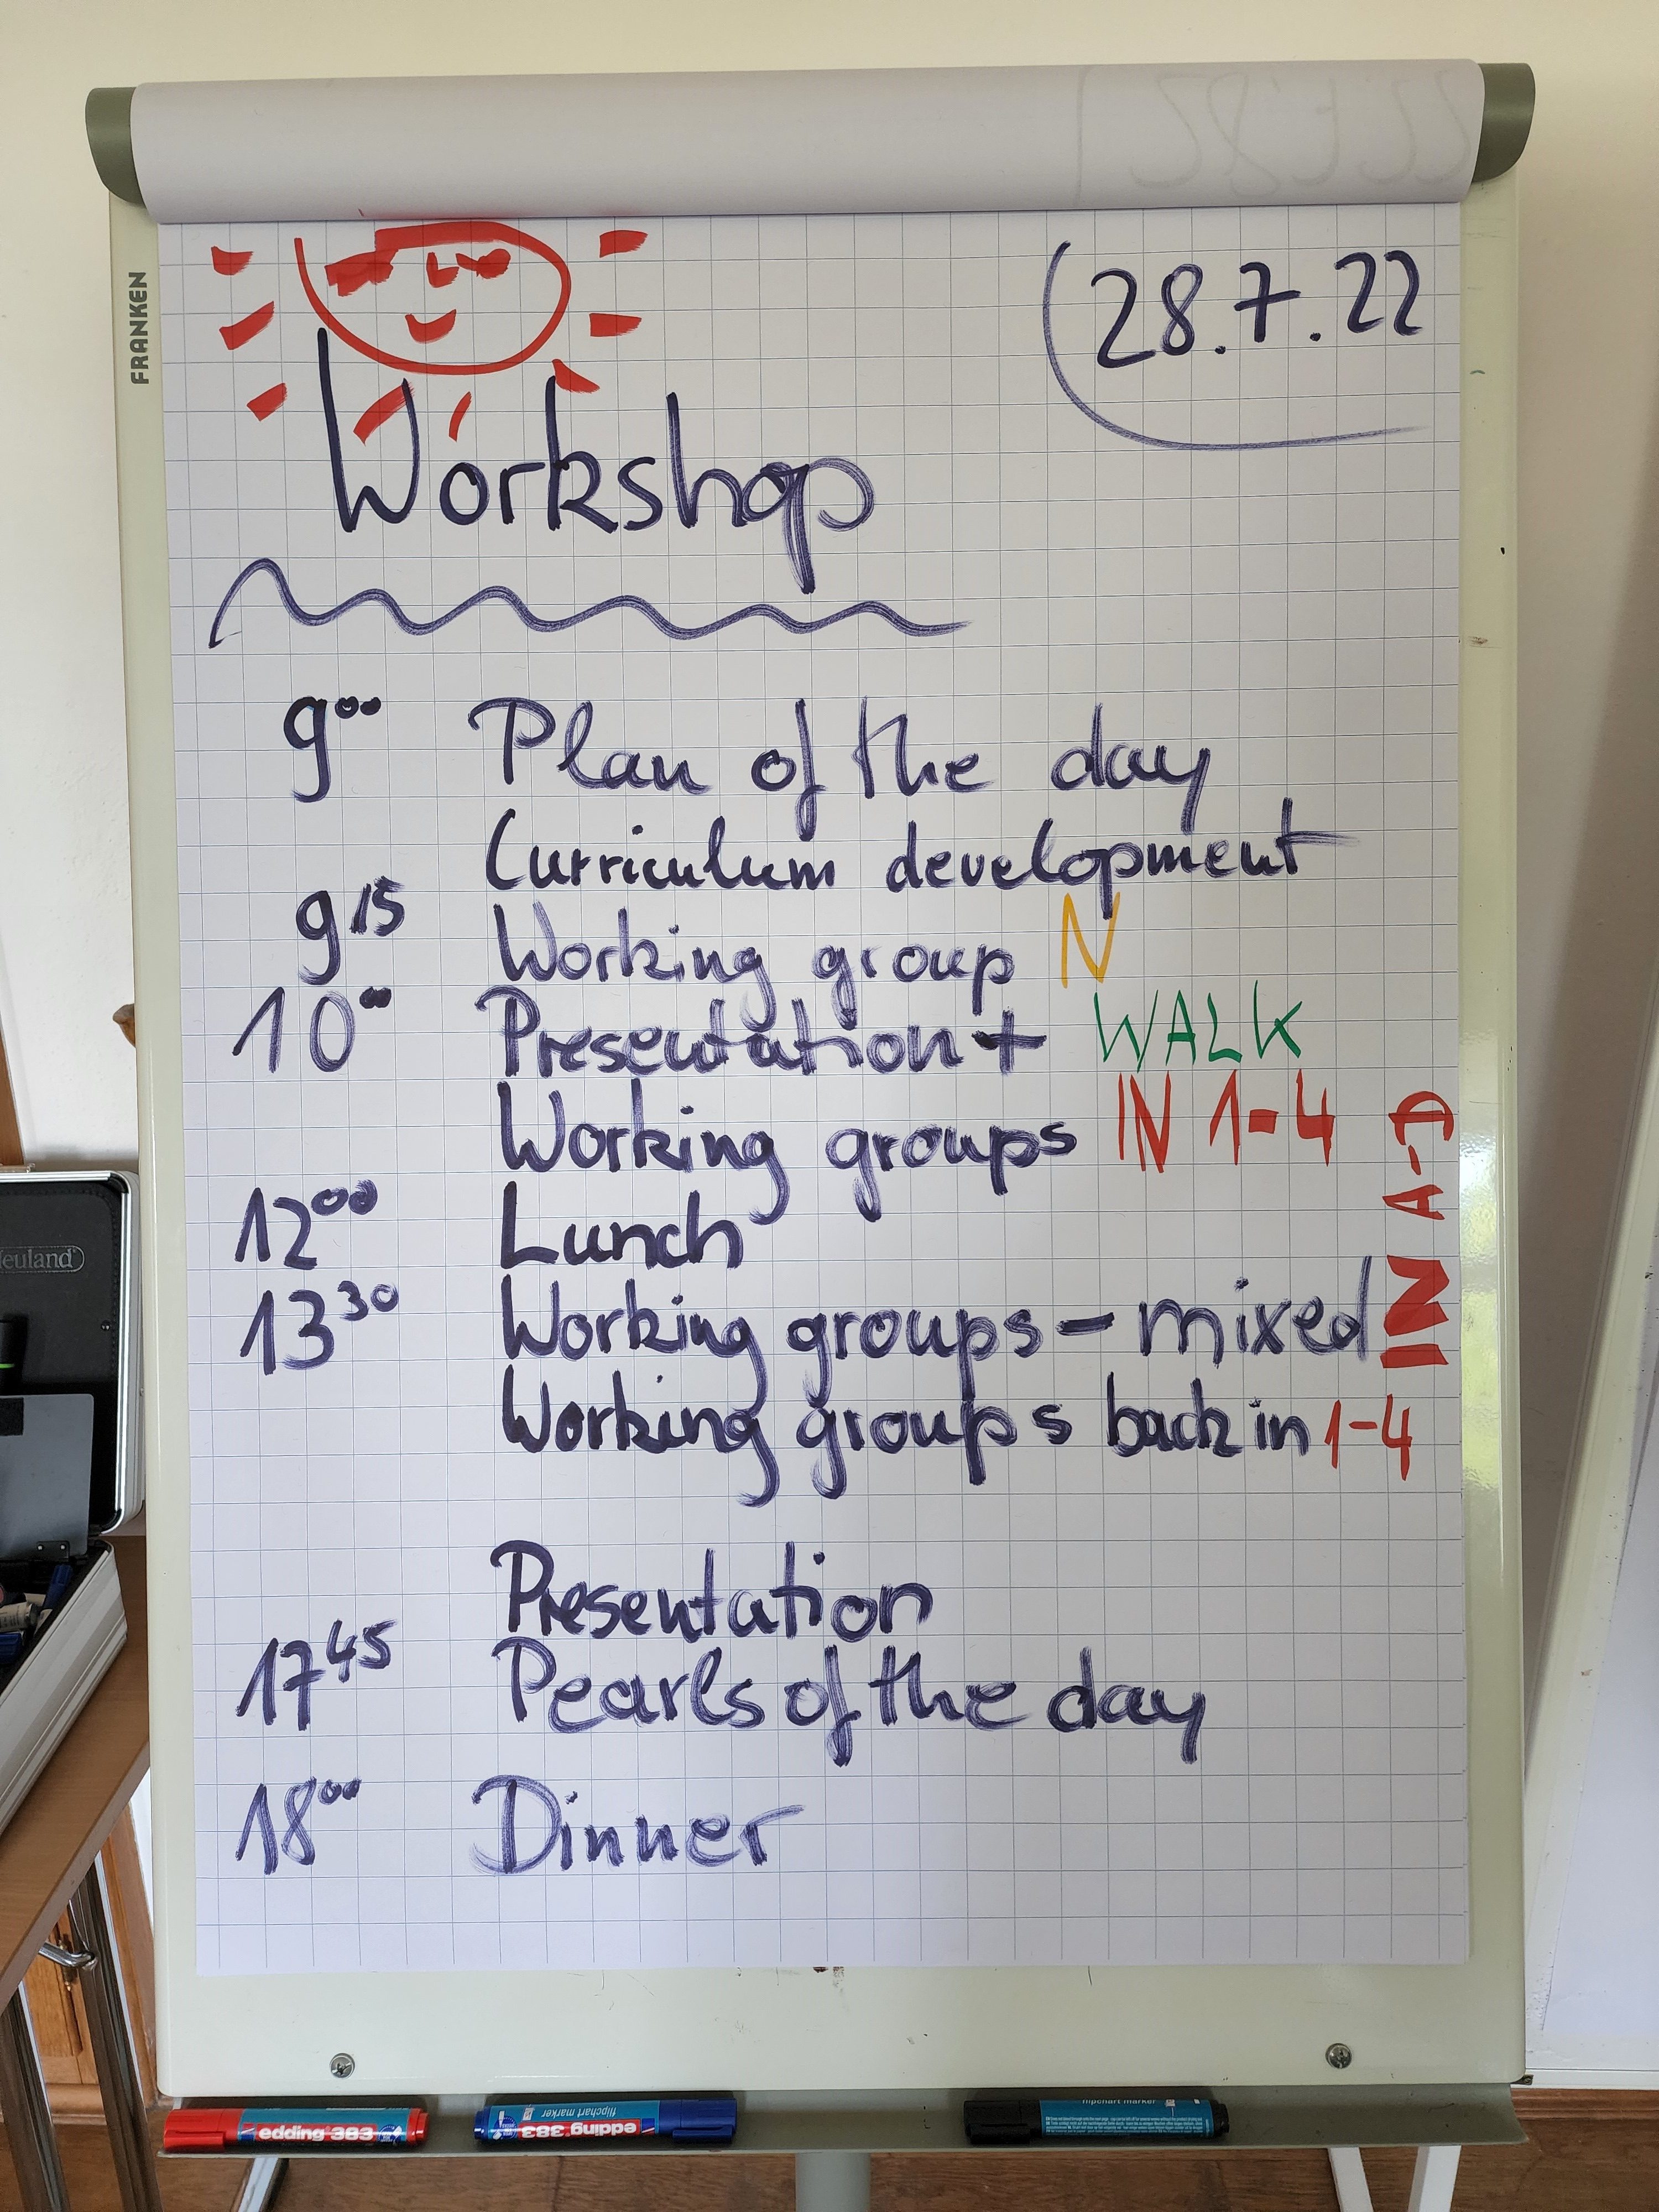 FRANKEN
28.7.22
Workshop
9⁰⁰ Plan of the day
Curriculum development
9¹⁵ Working group N
10⁰⁰ Presentation + WALK
Working groups IN 1-4
12⁰⁰ Lunch
13³⁰ Working groups - mixed IN A-D
Working groups back in 1-4
Presentation
17⁴⁵ Pearls of the day
18⁰⁰ Dinner
Neuland
edding 383
edding 383 flipchart marker
flipchart marker